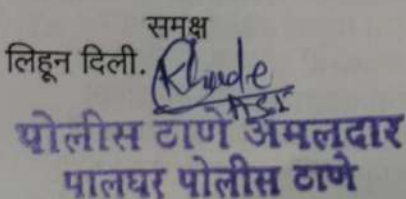 समक्ष
लिहून दिली.
पोलीस ठाणे अमलदार
पालघर पोलीस ठाणे